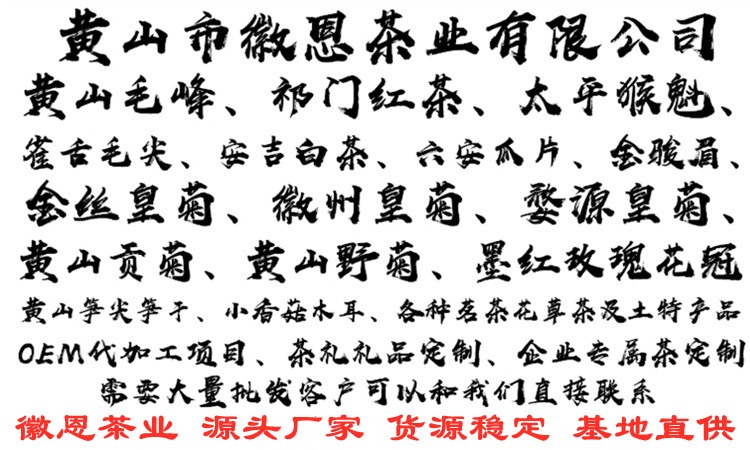 黄山市徽恩茶业有限公司
黄山毛峰、祁门红茶、太平猴魁、
雀舌毛尖、安吉白茶、六安瓜片、金骏眉、
金丝皇菊、徽州皇菊、婺源皇菊、
黄山贡菊、黄山野菊、墨红玫瑰花冠
黄山笋尖笋干、小香菇木耳、各种茗茶花草茶及土特产品
OEM代加工项目、茶礼礼品定制、企业专属茶定制
需要大量批发客户可以和我们直接联系
徽恩茶业 源头厂家 货源稳定 基地直供